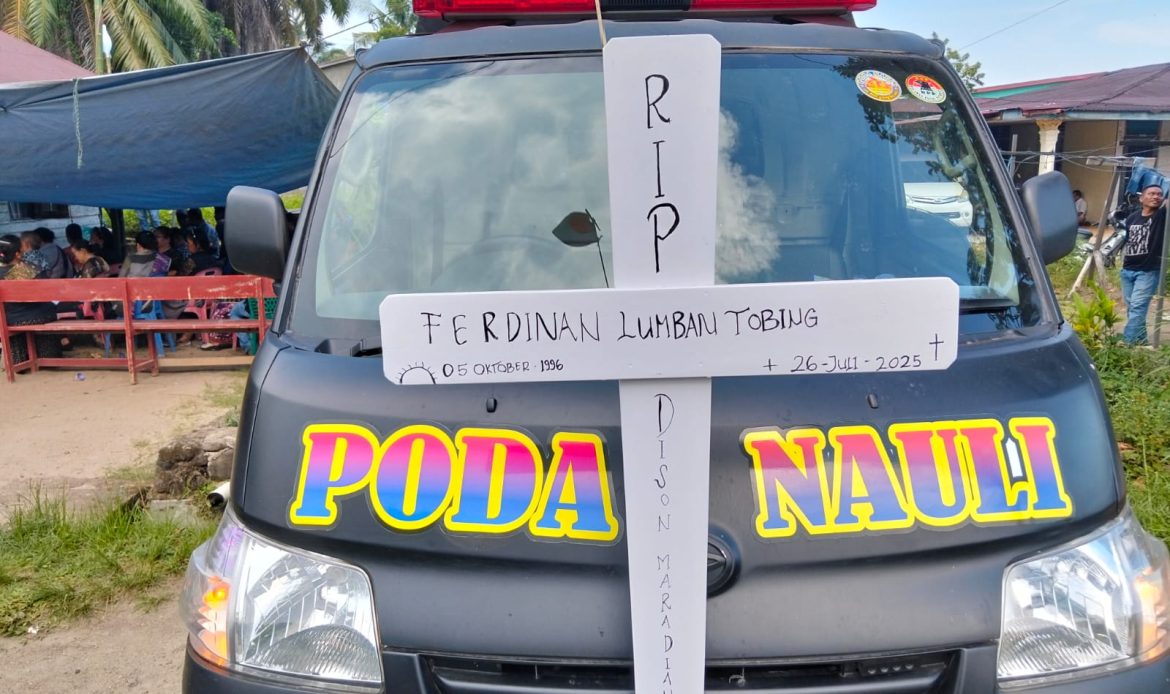 RIP
FERDINAN LUMBAN TOBING
05 OKTOBER - 1996
26 - JULI - 2025
PODA NAULI
DISON MARADIAN